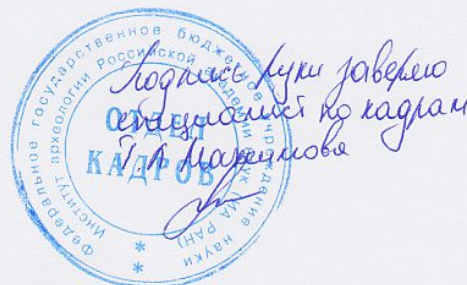 Федеральное государственное бюджетное учреждение науки
Институт археологии Российской академии наук (ИА РАН)
ОТДЕЛ
КАДРОВ
Подпись руки заверяю
специалист по кадрам
Т.А. Максимова